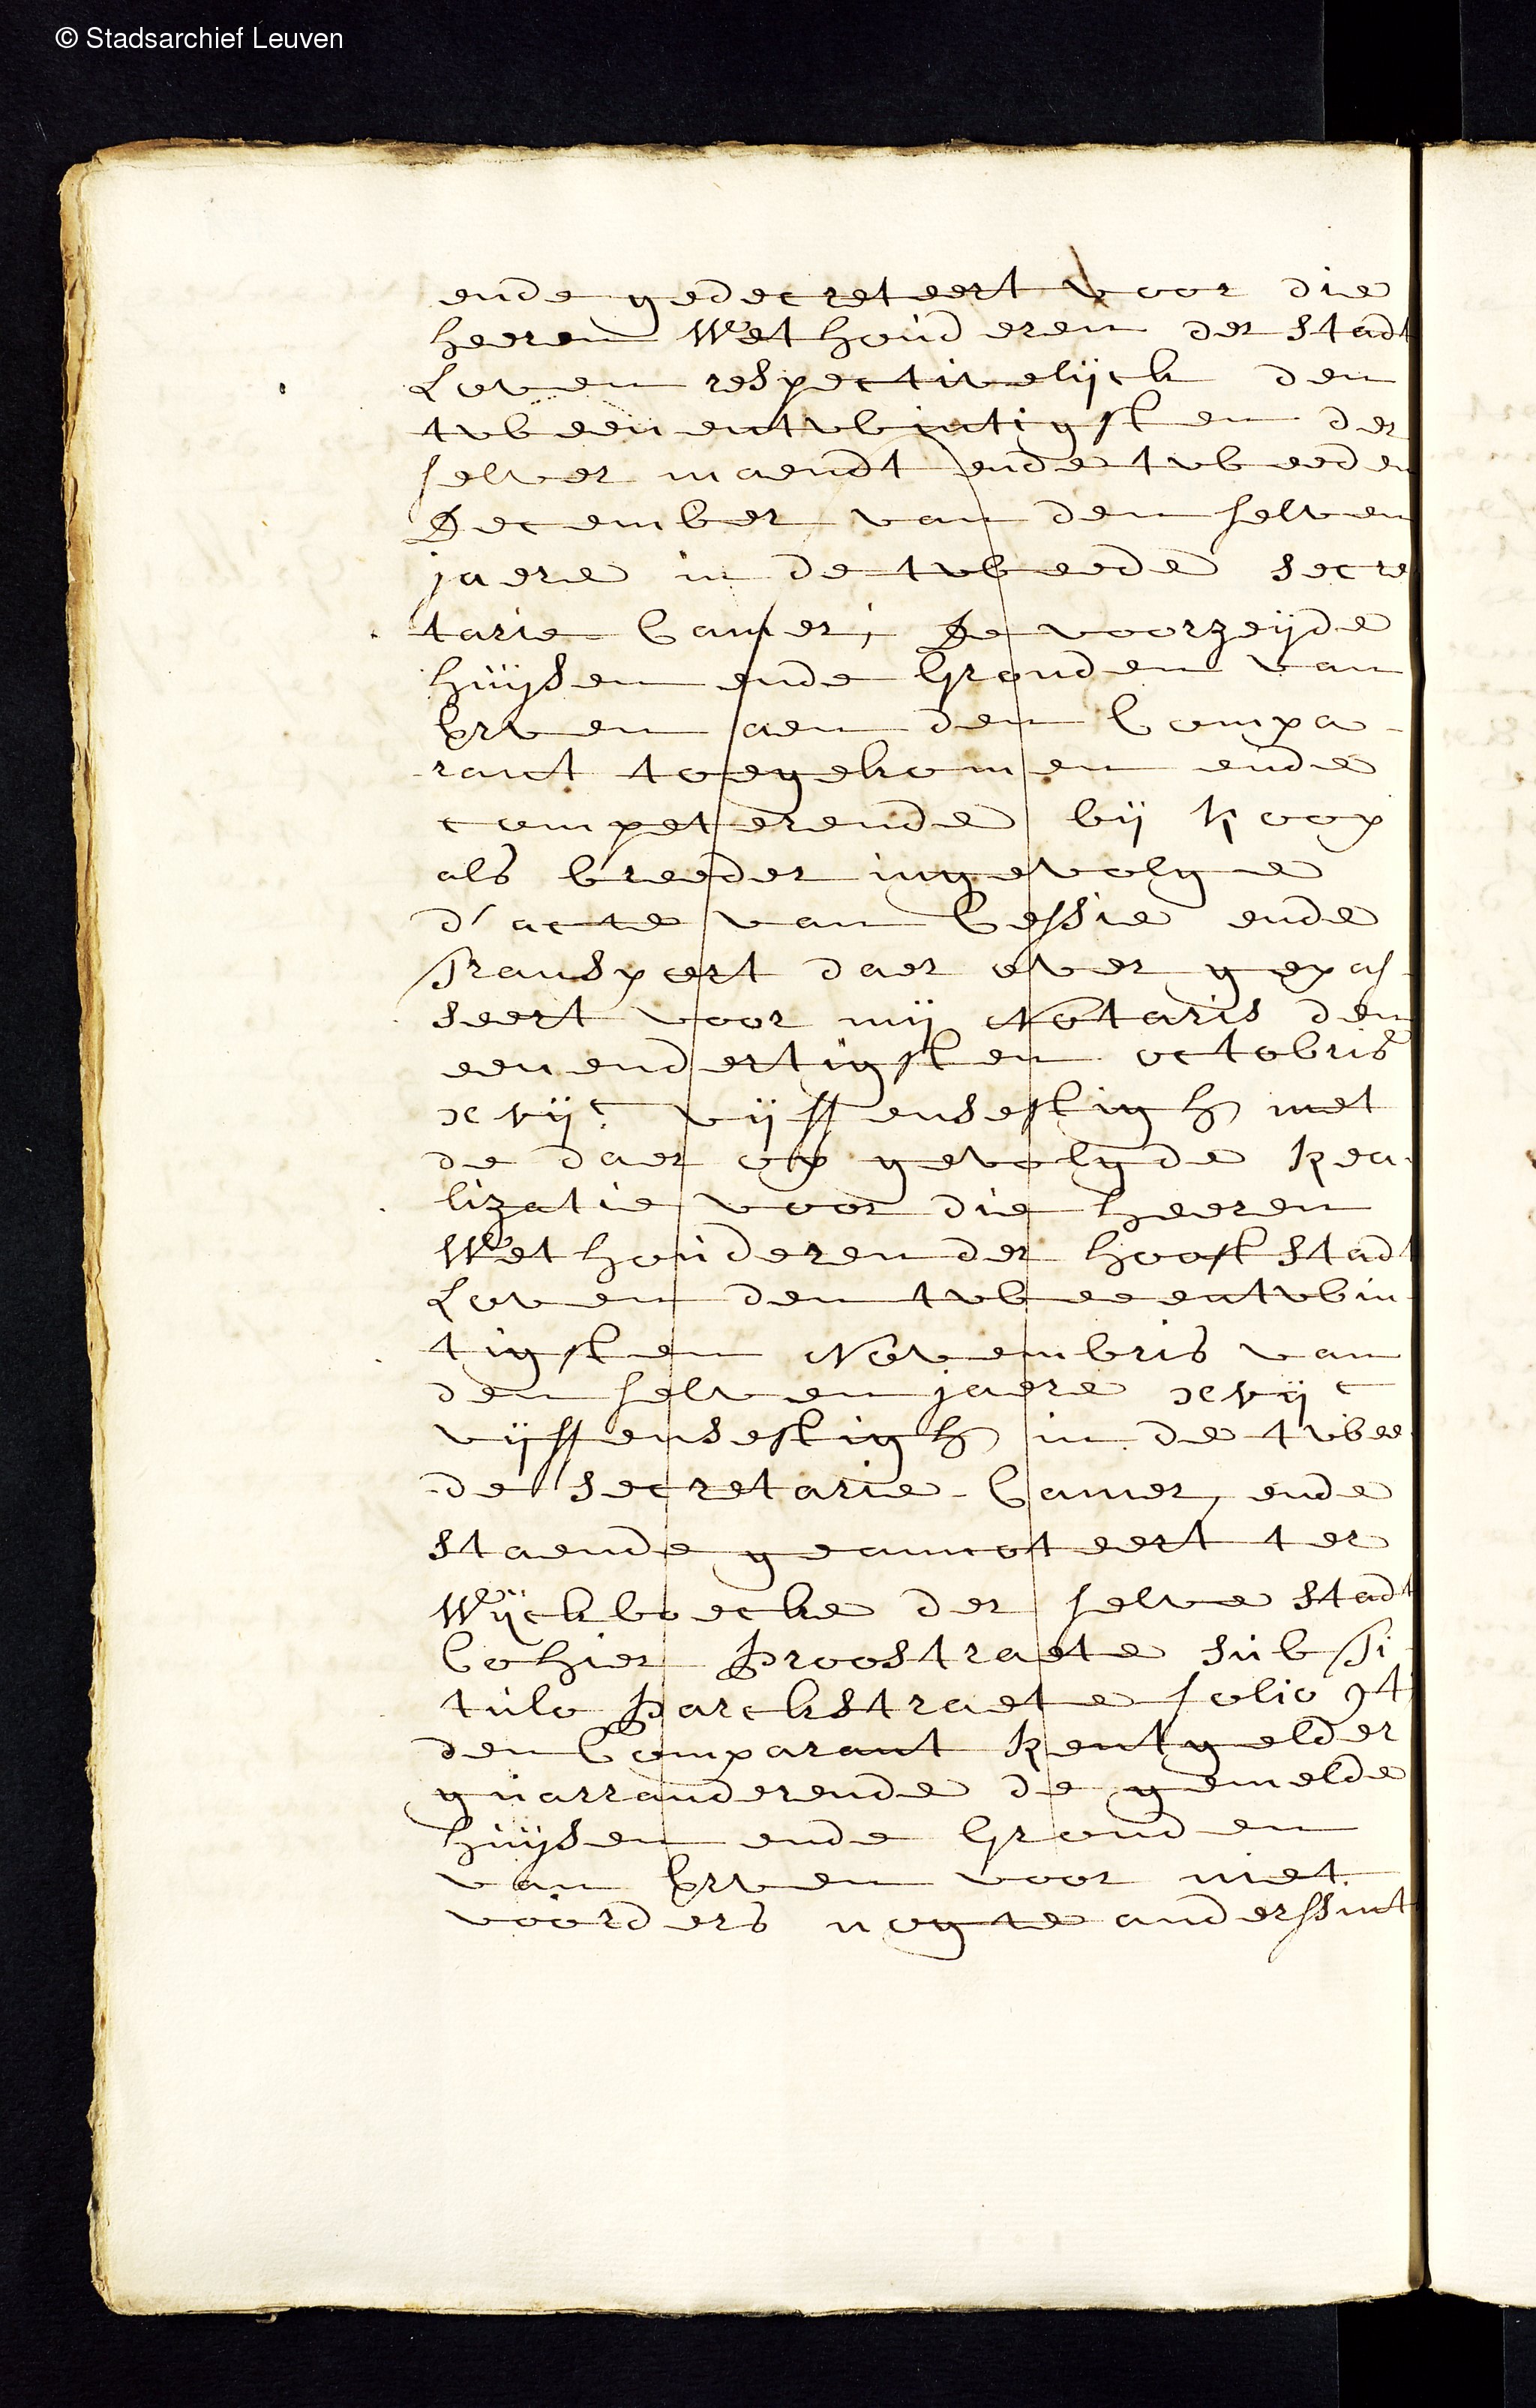 © Stadsarchief Leuven
ende gedecreteert voor die
heeren Wethouderen der stadt
Loven respectivelijck den
tweeentwintigsten der
selver maendt ende tweeden
December van den selven
jaere in de tweede secre
tarie Camer, De voorzeijde
huijsen ende Gronden van
Erven aen den Compa-
-rant toegekomen ende
competerende bij koop
als breeder ingevolge
d'acte van Cessie ende
Transport daer over gepas
seert voor mij Notaris den
eenendertigsten octobris
xvijc vijffensestigh met
de daer op gevolgde Rea-
lizatie voor die heeren
Wethouderen der hooft stadt
Loven den tweeentwin
tigsten Novembris van
den selven jaere xvijc
vijffensestigh in de twee
de secretarie-Camer, ende
staende geannoteert ter
Wijckboecke der selve stadt
Cohier Proostraete sub Ti
tulo Parckstraete folio
den Comparant Rentgelder
guarranderende de gemelde
huijsen ende Gronden
van Erven voor niet
voorders nogte anderssint